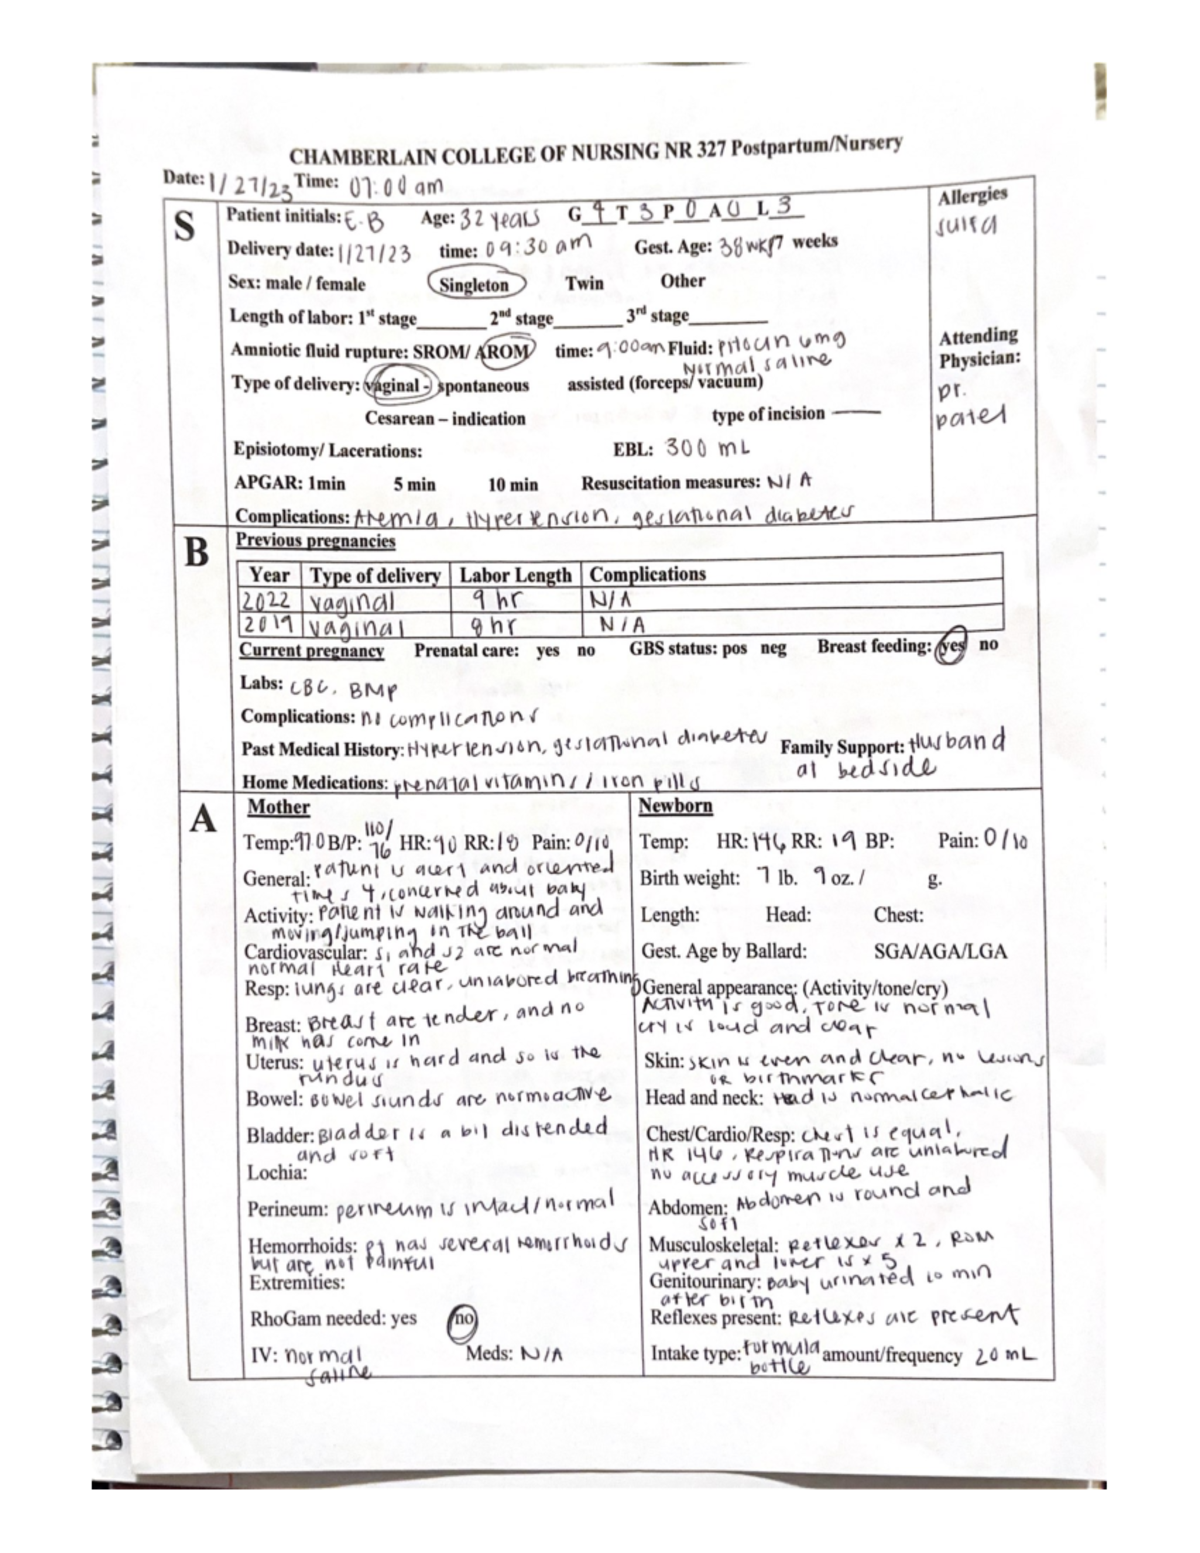 CHAMBERLAIN COLLEGE OF NURSING NR 327 Postpartum/Nursery
Date: 1/27/23 Time: 07:00 am
S
Patient initials: E.B Age: 32 years G 4 T 3 P 0 A 0 L 3
Allergies
sulfa
Delivery date: 1/27/23 time: 09:30 am Gest. Age: 38 wk/7 weeks
Sex: male / female Singleton Twin Other
Length of labor: 1st stage______ 2nd stage______ 3rd stage______
Amniotic fluid rupture: SROM/ AROM time: 9:00am Fluid: Pitocin 6mg
Normal saline
Attending
Physician:
Dr.
Patel
Type of delivery: vaginal - spontaneous assisted (forceps/ vacuum)
Cesarean – indication type of incision
Episiotomy/ Lacerations: EBL: 300 mL
APGAR: 1min 5 min 10 min Resuscitation measures: N/A
Complications: Anemia, Hypertension, gestational diabetes
B
Previous pregnancies
Year Type of delivery Labor Length Complications
2022 vaginal 9 hr N/A
2019 vaginal 8 hr N/A
Current pregnancy Prenatal care: yes no GBS status: pos neg Breast feeding: yes no
Labs: CBC, BMP
Complications: no complications
Past Medical History: Hypertension, gestational diabetes Family Support: Husband
at bedside
Home Medications: prenatal vitamins / iron pills
A
Mother
Temp: 97.0 B/P: 110/76 HR: 90 RR: 18 Pain: 0/10
General: Patient is alert and oriented
times 4, concerned about baby
Activity: Patient is walking around and
moving/jumping in the ball
Cardiovascular: S1 and S2 are normal
normal heart rate
Resp: lungs are clear, unlabored breathing
Breast: Breast are tender, and no
milk has come in
Uterus: uterus is hard and so is the
fundus
Bowel: Bowel siunds are normoactive
Bladder: Bladder is a bit distended
and soft
Lochia:
Perineum: perineum is intact/normal
Hemorrhoids: pt has several hemorrhoids
but are not painful
Extremities:
RhoGam needed: yes no
IV: normal Meds: N/A
saline
Newborn
Temp: HR: 146 RR: 19 BP: Pain: 0/10
Birth weight: 7 lb. 9 oz. / g.
Length: Head: Chest:
Gest. Age by Ballard: SGA/AGA/LGA
General appearance: (Activity/tone/cry)
Activity is good, Tone is normal
cry is loud and clear
Skin: skin is even and clear, no lesions
or birthmarks
Head and neck: Head is normalcephalic
Chest/Cardio/Resp: chest is equal,
HR 146, Respirations are unlabored
no accessory muscle use
Abdomen: Abdomen is round and
soft
Musculoskeletal: Reflexes x 2, ROM
upper and lower is x 5
Genitourinary: Baby urinated 10 min
after birth
Reflexes present: Reflexes are present
Intake type: formula amount/frequency 20 mL
bottle